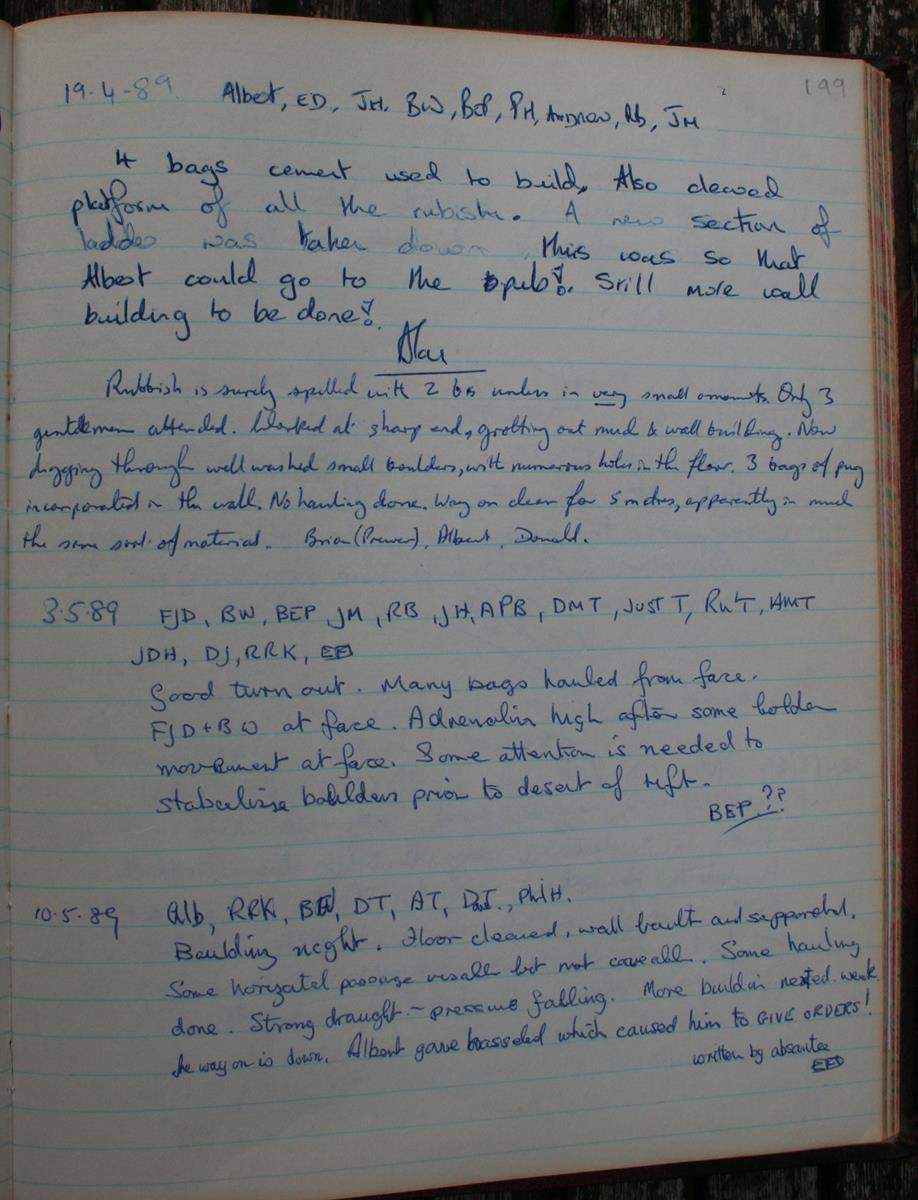 199
19.4-89 Albert, ED, JH, BW, BEP, PH, Andrew, Rb, JM
4 bags cement used to build. Also cleared
platform of all the rubish. A new section of
ladder was taken down, this was so that
Albert could go to the pub!. Srill more wall
building to be done!.
Rubbish is surely spelled with 2 bs unless in very small amounts. Only 3
gentlemen attended. Worked at sharp end, grotting out mud & wall building. Now
digging through well washed small boulders, with numerous holes in the floor. 3 bags of pug
incorporated in the wall. No hauling done. Way on clear for 5 metres, apparently in much
the same sort of material. Brian (Prewer), Albert, Donald.
3.5.89 FJD, BW, BEP, JM, RB, JH, APB, DMT, JUST T, RuT, AMT
JDH, DJ, RRK,
Good turn out. Many bags hauled from face.
FJD + BW at face. Adrenalin high after some bolder
movement at face. Some attention is needed to
stabalise boulders prior to desert of rift.
BEP.??
10.5.89 Alb, RRK, DT, AT, Phil H.
Baulding night. Floor cleared, wall built and supported.
Some horizatal passage visable but not caveable. Some hauling
done. Strong draught - pressure falling. More buildin next week
the way on is down. Albert gave which caused him to GIVE ORDERS!
written by absantee